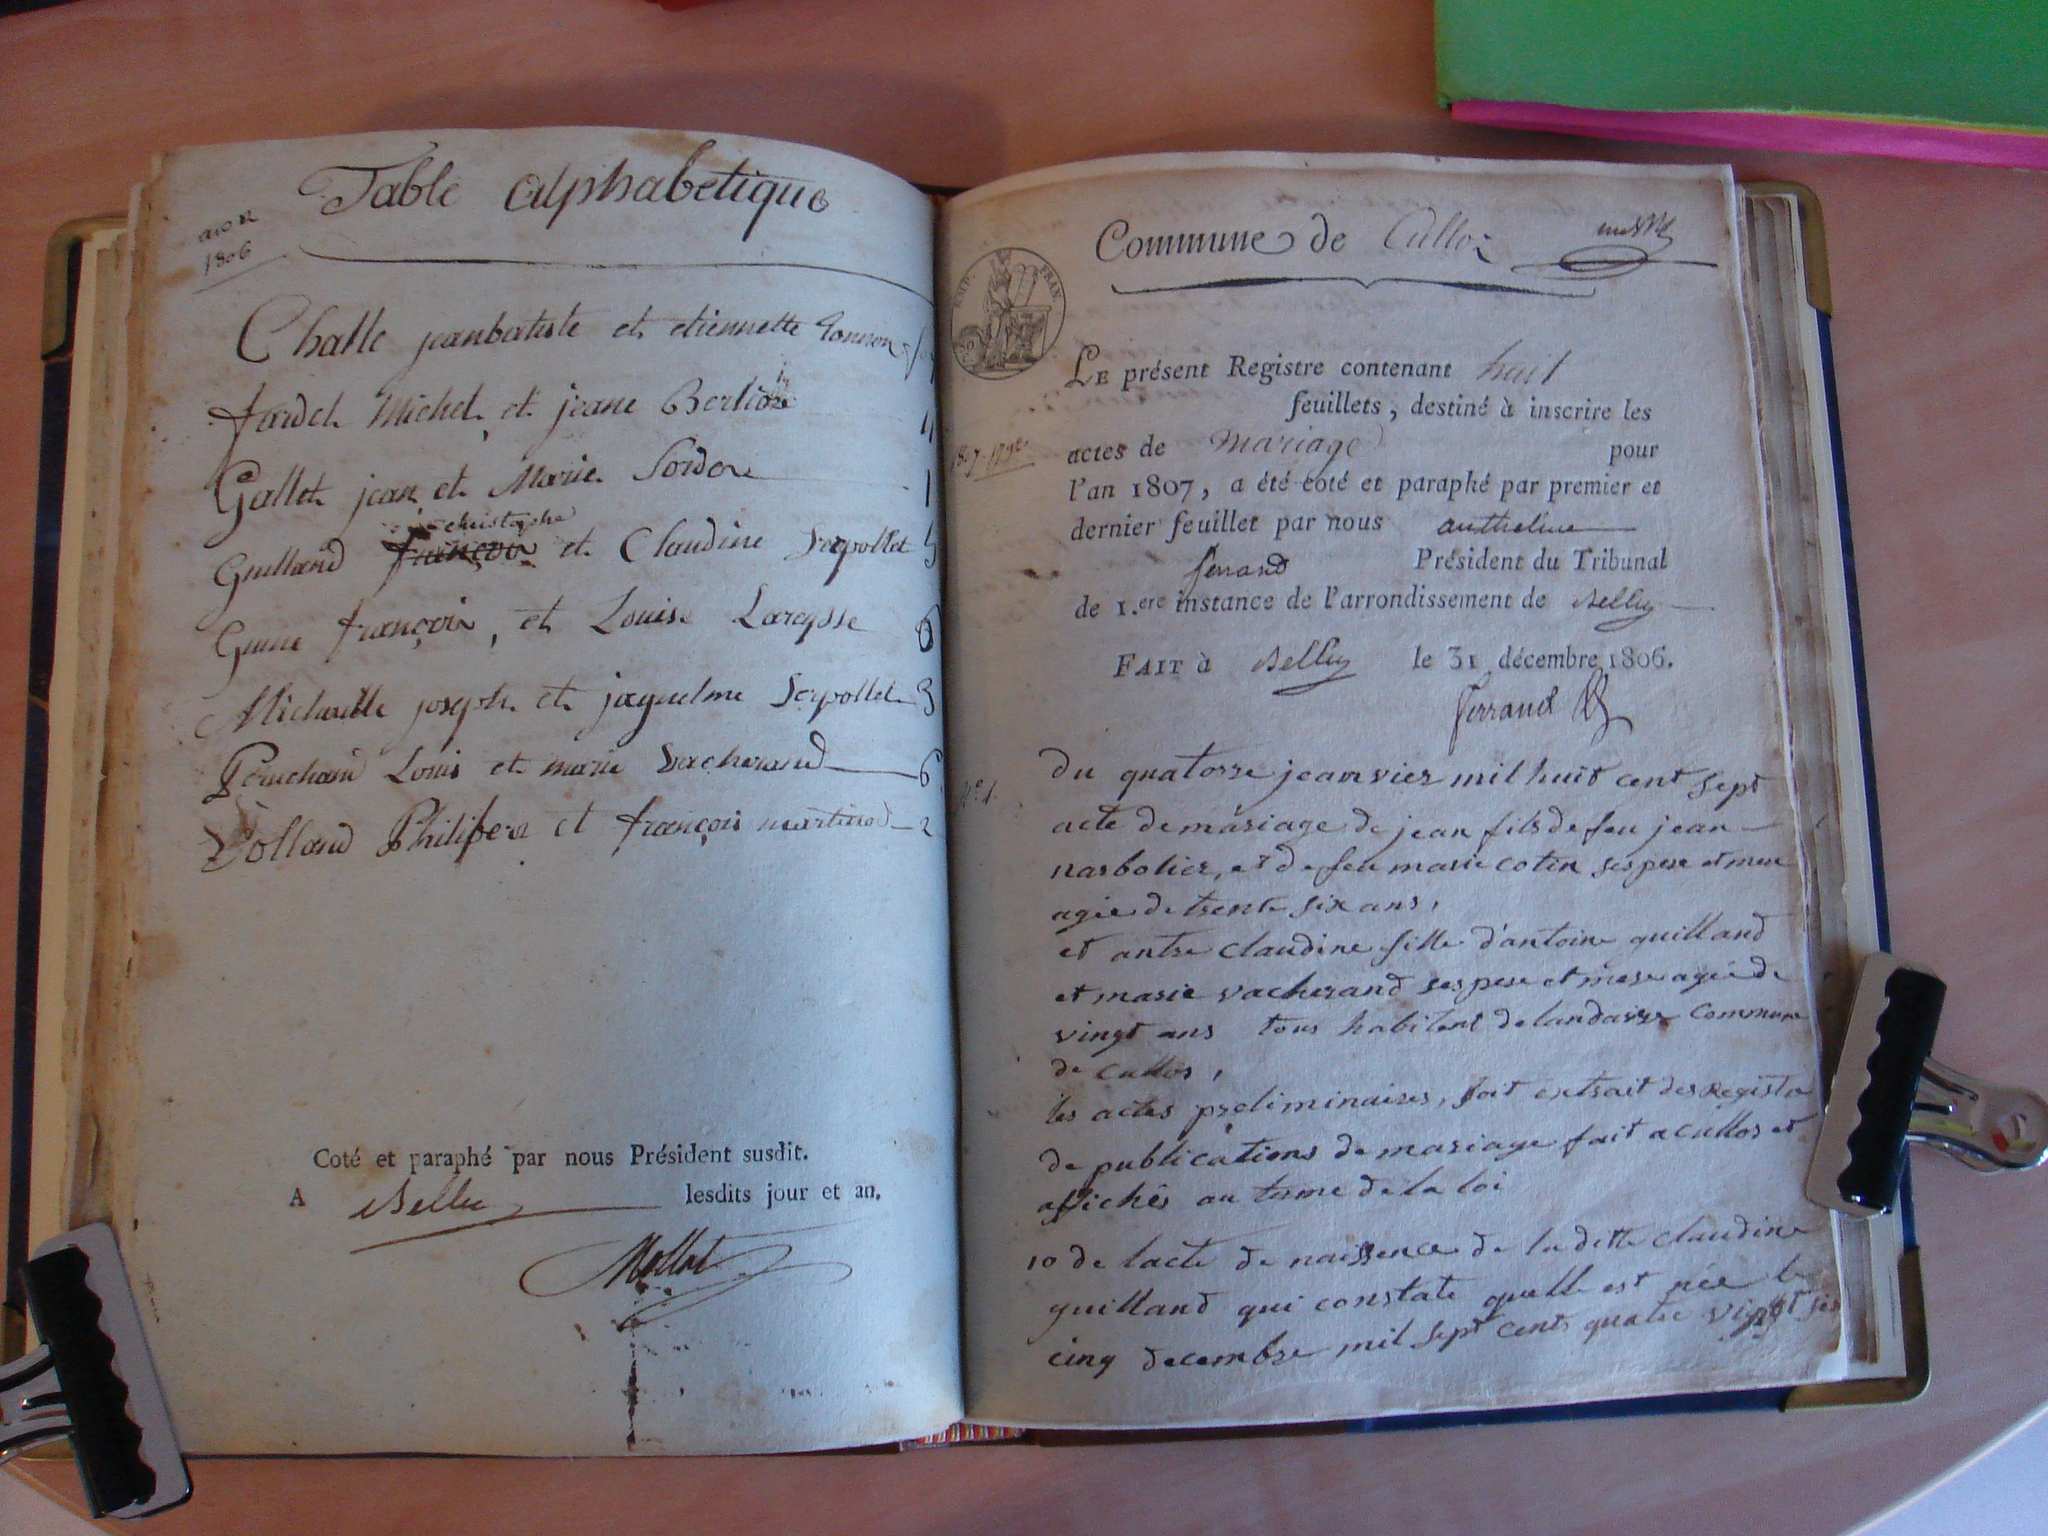 Table alphabetique
1806
Challe jeanbatiste et etiennette
Jardet Michel, et jeane Berlion 4
Gallet jean et Marie Sordon 1
christophe
Guilland françois et Claudine Serpollet 5
Gume françois, et Louise Lareysse 6
Michaille joseph et jaquelme Serpollet 3
Peruchard Louis et marie Vacherand 6
Volland Philibert et françois martinod 2
Coté et paraphé par nous Président susdit.
A Belley lesdits jour et an.
Mollet
Commune de Culloz
EMP. FRAN.
LE présent Registre contenant huit
feuillets, destiné à inscrire les
actes de Mariage pour
l'an 1807, a été coté et paraphé par premier et
dernier feuillet par nous anthelme
ferrand Président du Tribunal
de 1.ere instance de l'arrondissement de Belley
FAIT à Belley le 31 décembre 1806.
ferrand
N° 1.
du quatorze jeanvier mil huit cent sept
acte de mariage de jean fils de feu jean
narbolier, et de feu marie cotin ses pere et mere
agée de trente six ans,
et antre claudine fille d'antoine guilland
et marie vacherand ses pere et mere agée de
vingt ans tous habitent de landaize Commune
de culloz,
les actes preliminaires, sont extrait des Registre
de publications de mariage fait a culloz et
affichés au terme de la loi
10 de lacte de naissence de la ditte claudine
guilland qui constate quelle est née le
cinq decembre mil sept cents quatre vingt six